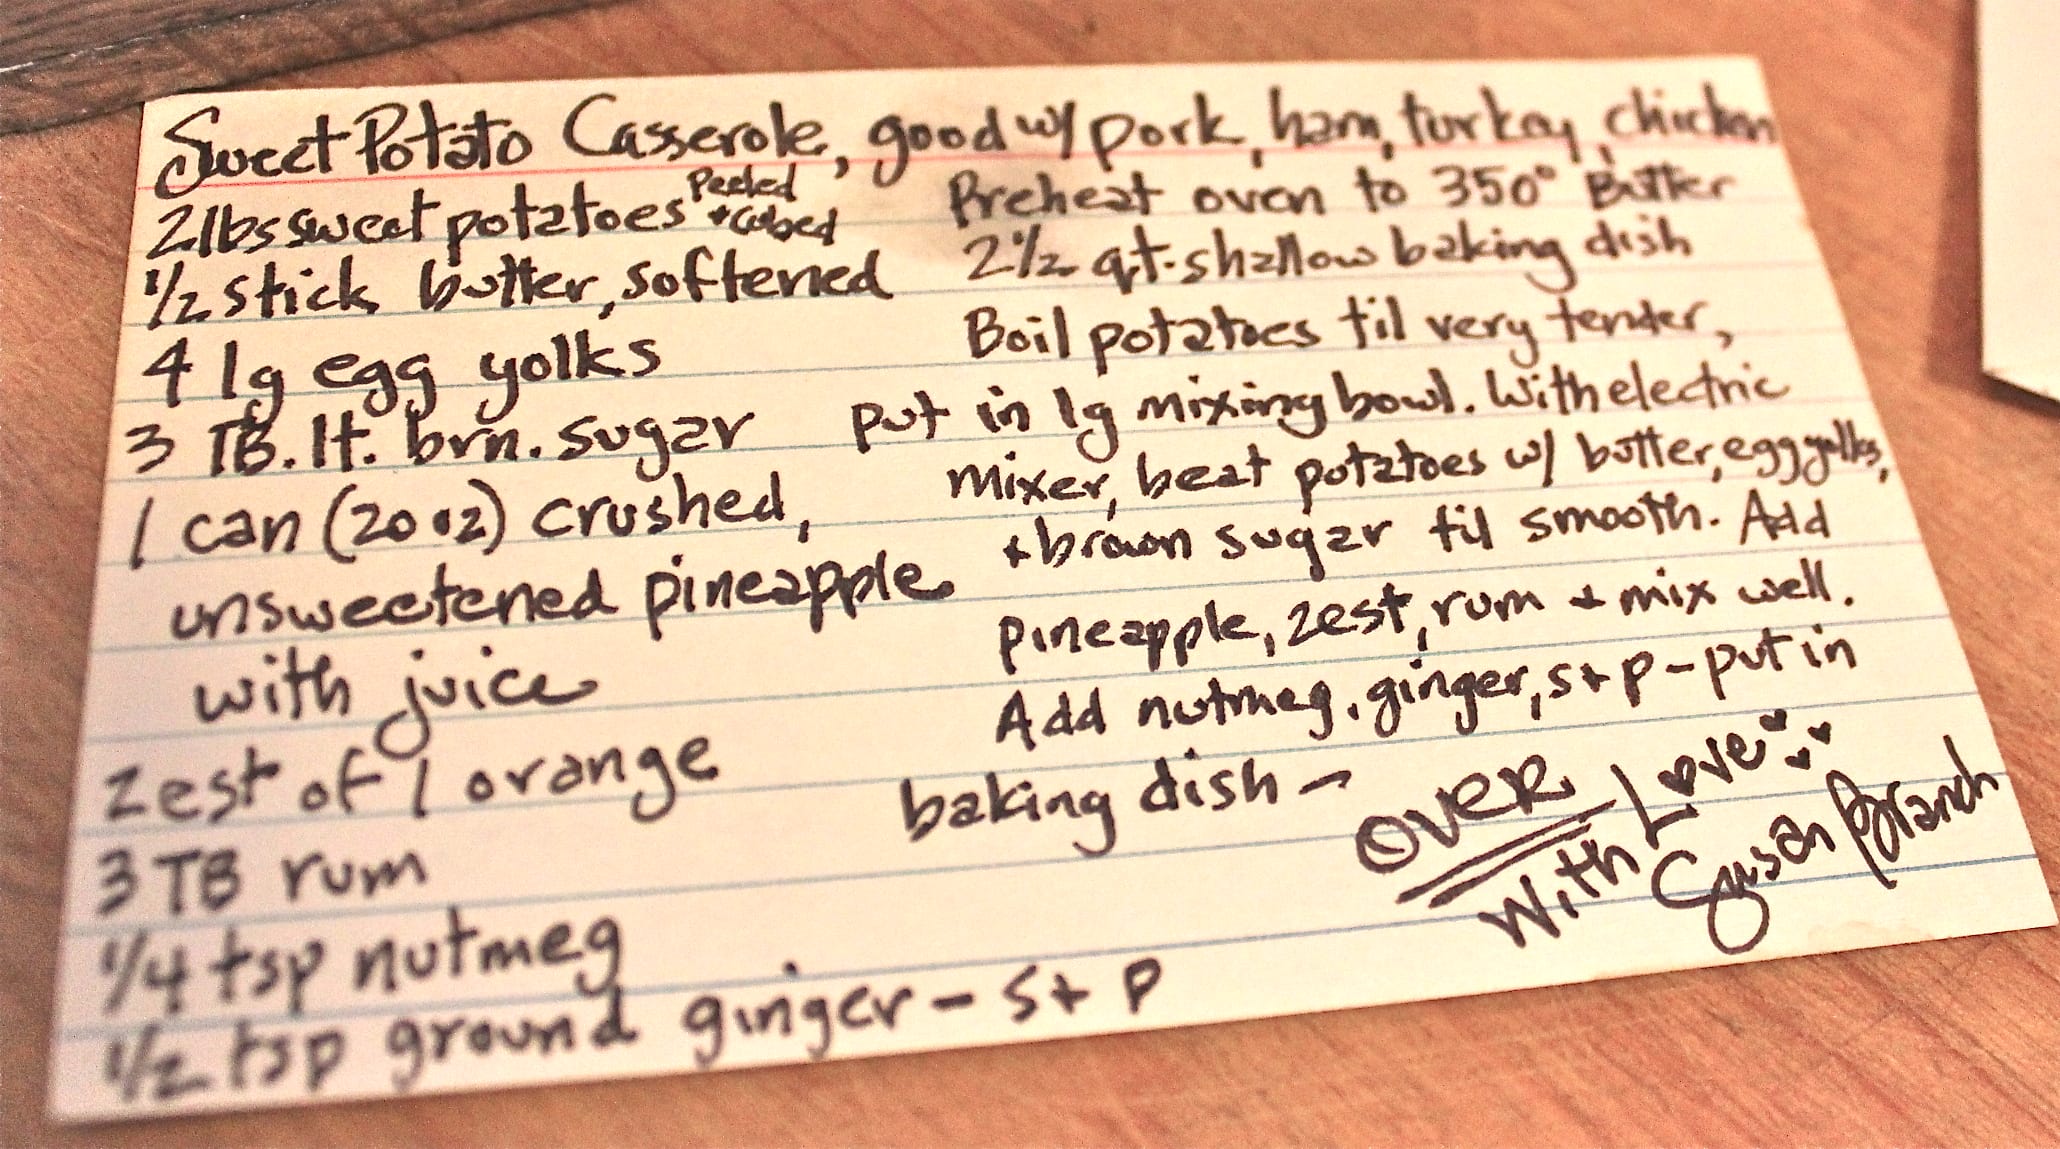 Sweet Potato Casserole, good w/ pork, ham, turkey, chicken
2 lbs sweet potatoes Peeled + cubed
1/2 stick butter, softened
4 lg egg yolks
3 TB. lt. brn. sugar
1 can (20 oz) crushed,
unsweetened pineapple
with juice
zest of 1 orange
3 TB rum
1/4 tsp nutmeg
1/2 tsp ground ginger - S + P
Preheat oven to 350° Butter
2 1/2 qt. shallow baking dish
Boil potatoes til very tender,
put in lg mixing bowl. With electric
mixer, beat potatoes w/ butter, egg yolks,
+ brown sugar til smooth. Add
pineapple, zest, rum + mix well.
Add nutmeg, ginger, s + p - put in
baking dish -
OVER
With Love
Susan Branch